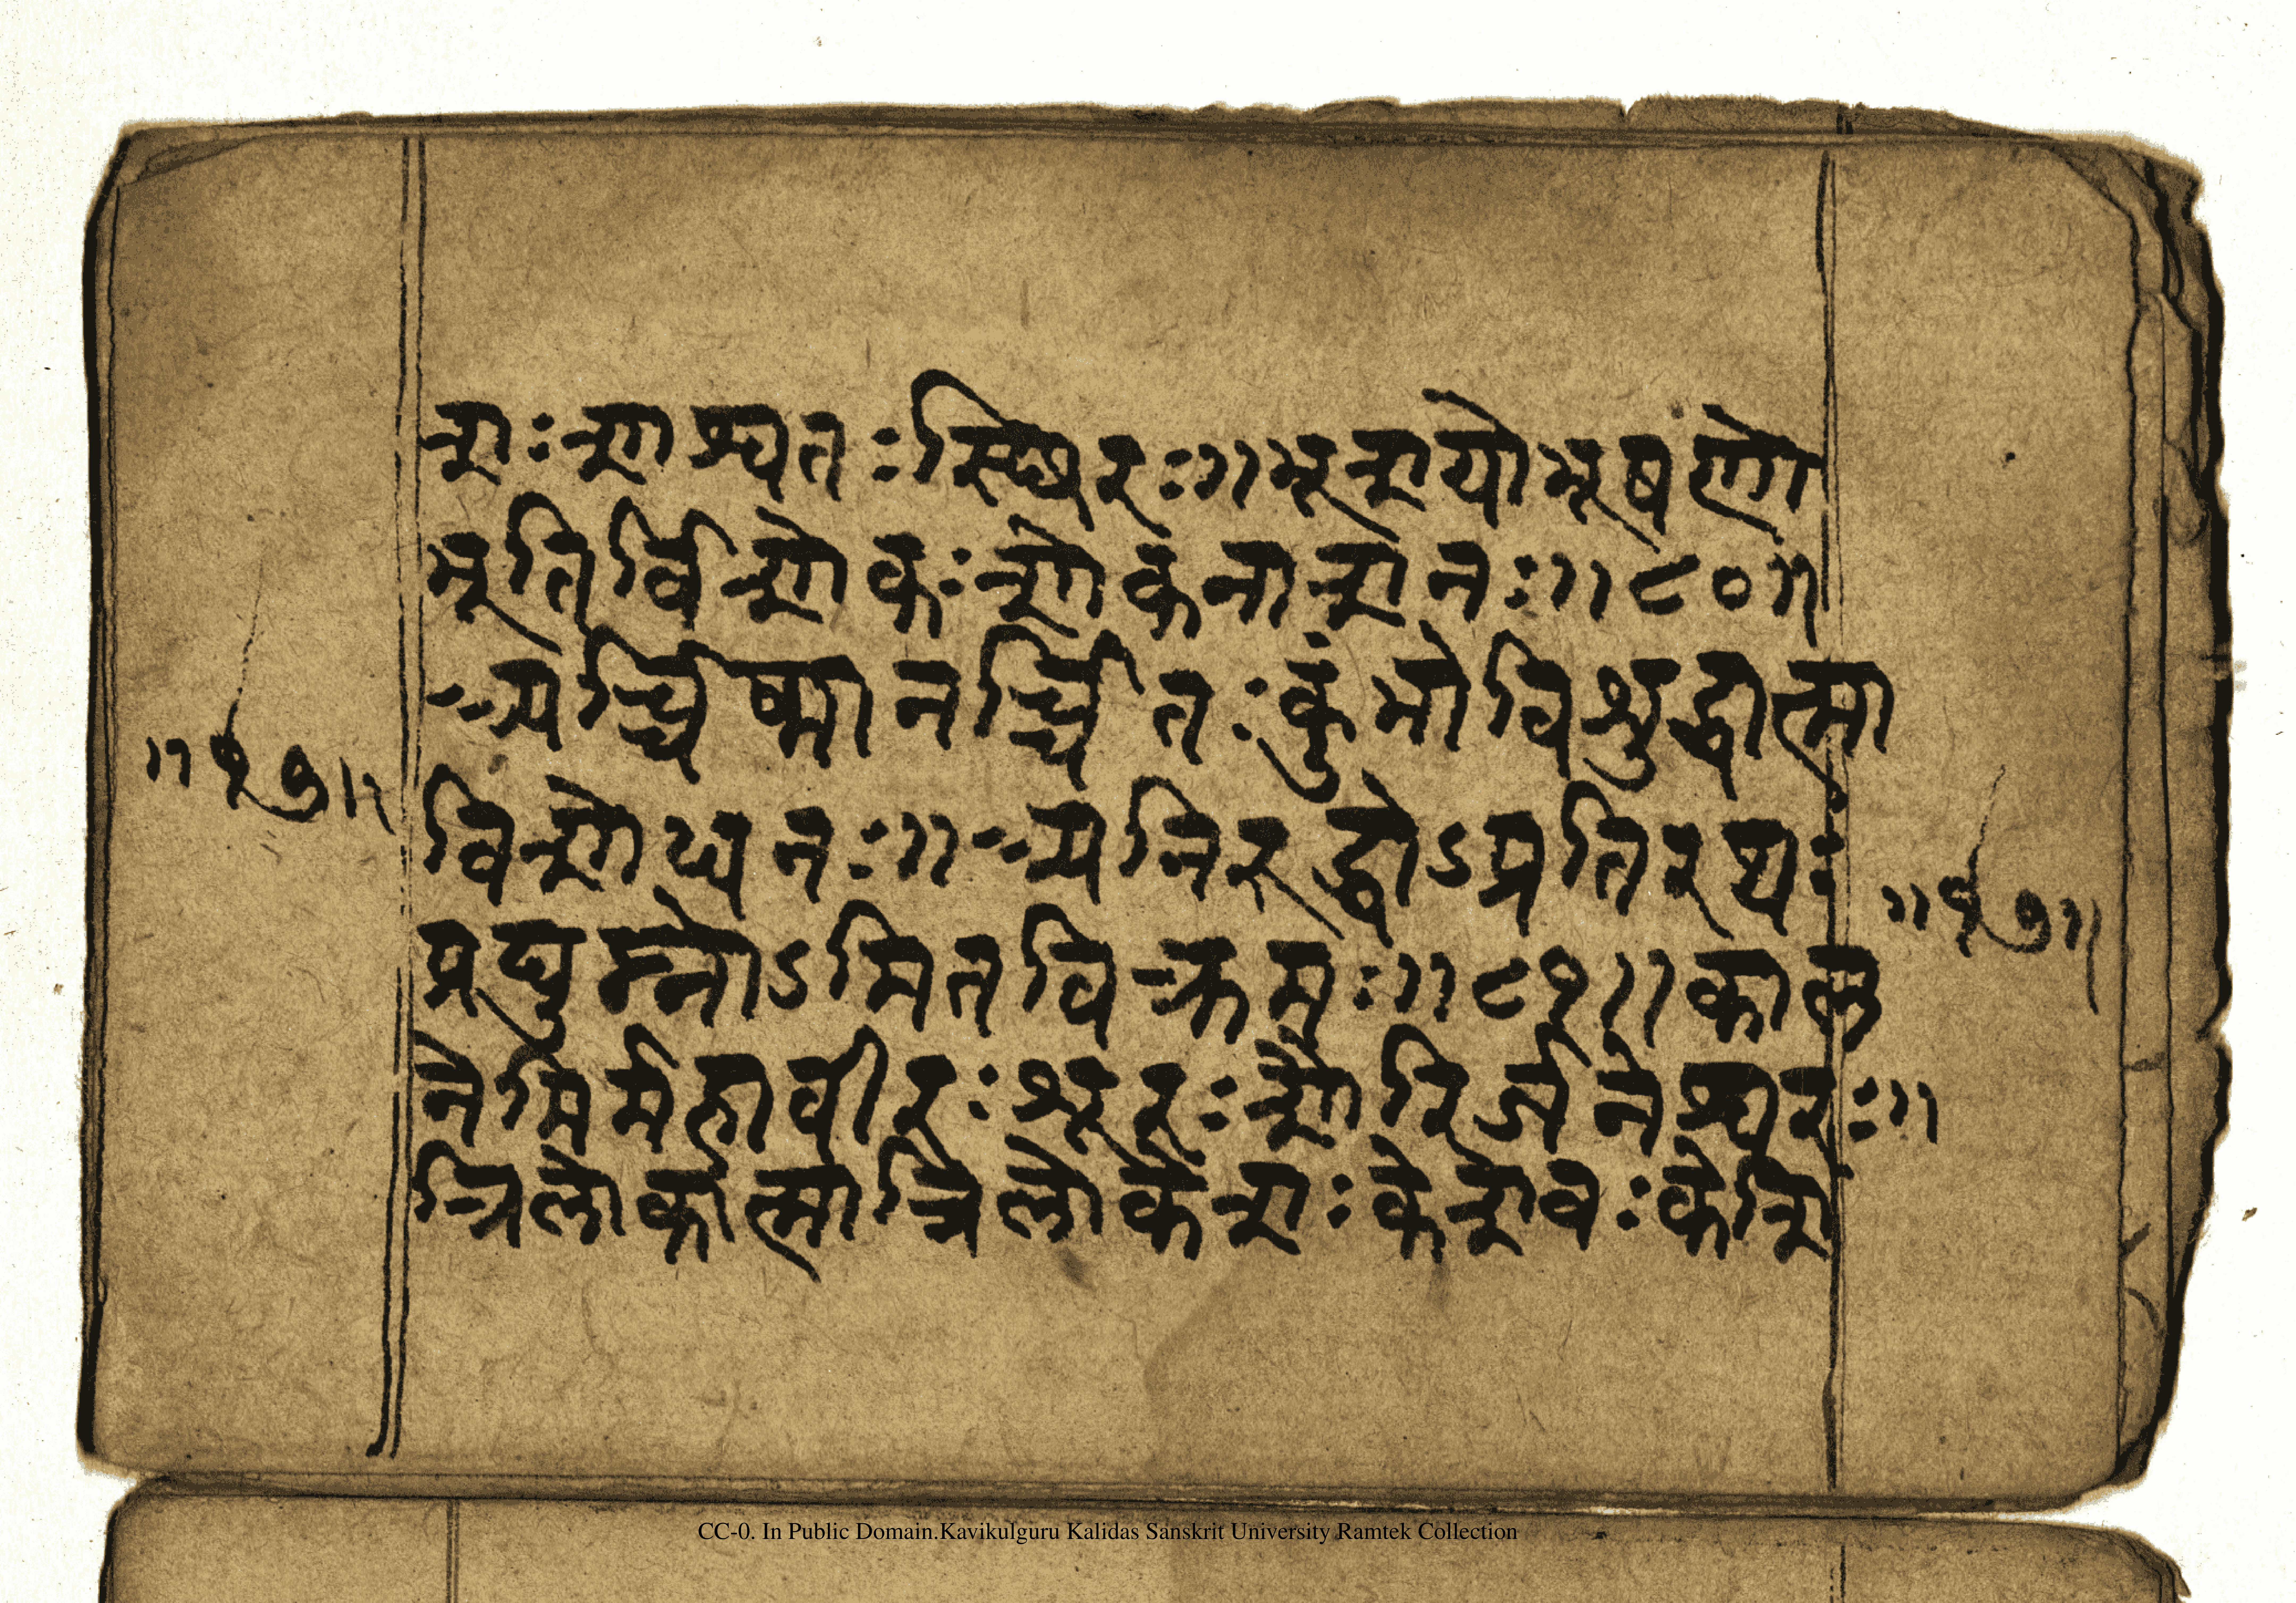 शः शाश्वतः स्थिरः॥ भूशयो भूषणो
भूतिर्विशोकः शोकनाशनः॥८०॥
अर्च्चिष्मानर्च्चितः कुंभो विशुद्धात्मा
विशोधनः॥ अनिरुद्धोऽप्रतिरथः
प्रद्युम्नोऽमितविक्रमः॥८१॥ काल
नेमिर्महावीरः शूरः शौरिर्जनेश्वरः॥
त्रिलोकात्मा त्रिलोकेशः केशवः केशि
॥१७॥
॥१७॥
CC-0. In Public Domain.Kavikulguru Kalidas Sanskrit University Ramtek Collection